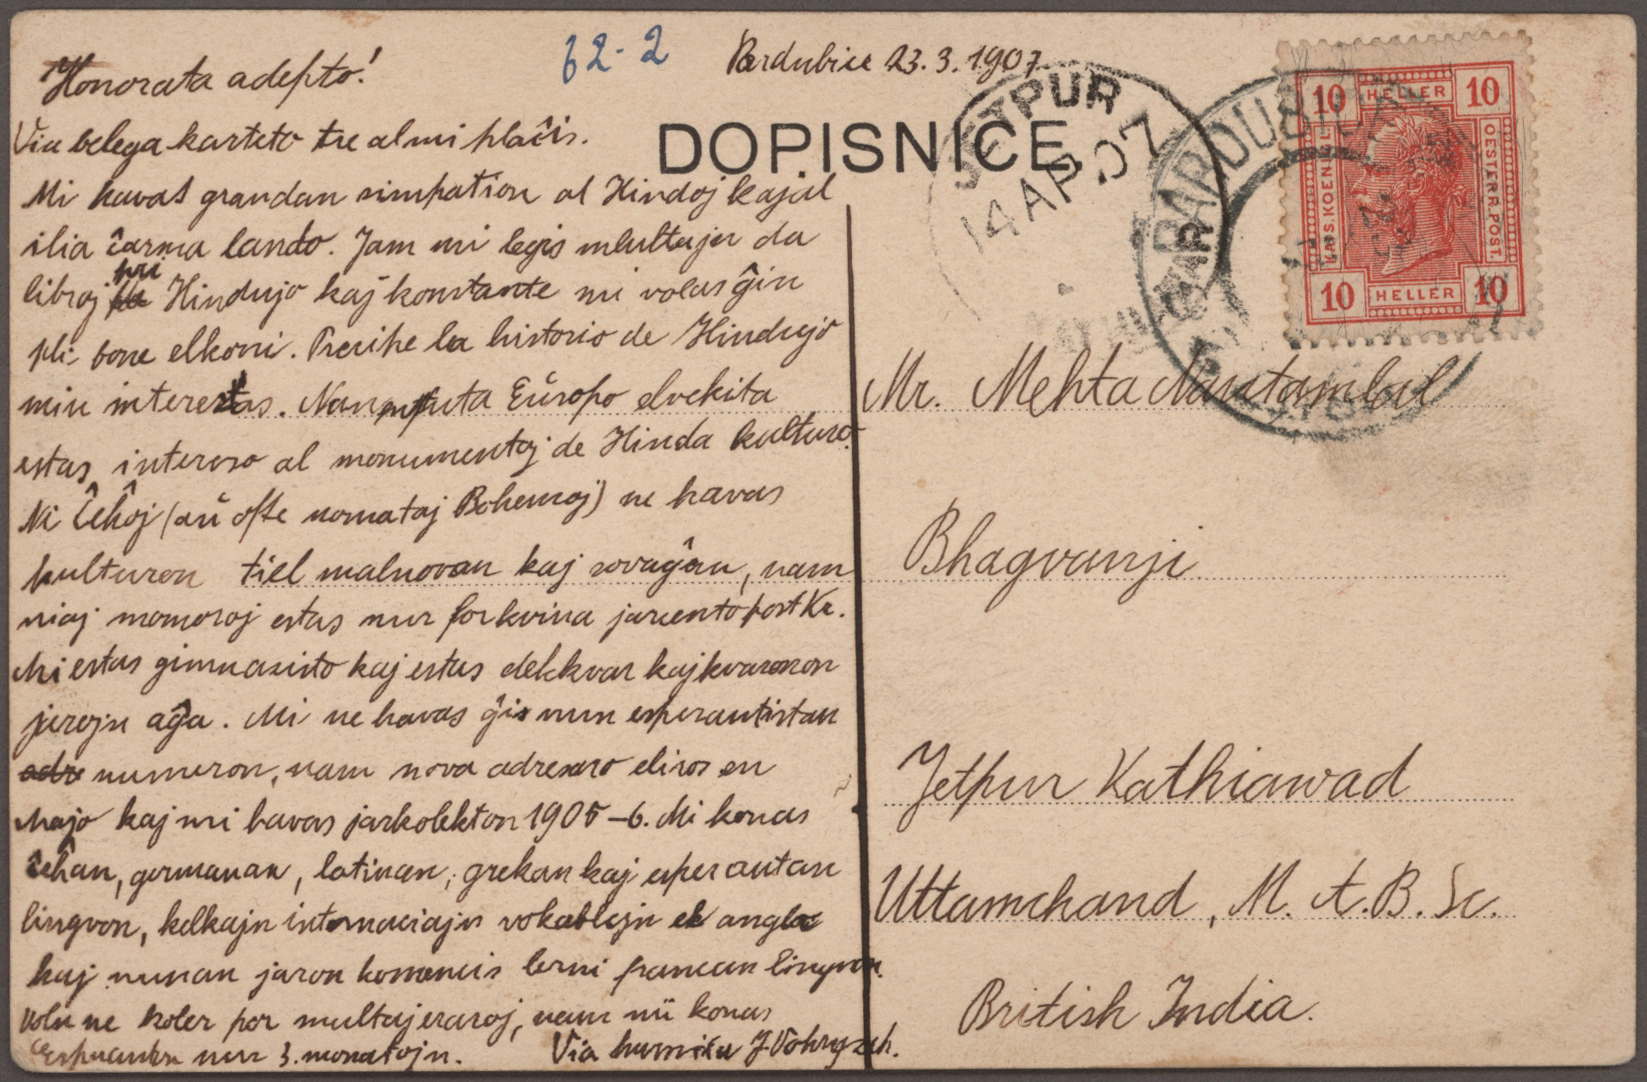 62-2
Pardubice 23.3.1907.
Honorata adepto!
Via belega karteto tre al mi plaĉis.
DOPISNICE.
Mi havas grandan simpation al Hindoj kaj al
ilia ĉarma lando. Jam mi legis multajn da
libroj pri Hindujo kaj konstante mi volas ĝin
pli bone elkoni. Precipe la historio de Hindujo
min interesas. Nun en tuta Eŭropo elvekita
estas intereso al monumentoj de Hinda kulturo.
Ni Ĉeĥoj (aŭ ofte nomataj Bohemoj) ne havas
kulturon tiel malnovan kaj sovaĝan, nam
niaj memoroj estas nur for kvina jarcento post Kr.
Mi estas gimnazisto kaj estas dekkvar kaj kvaronon
jarojn aĝa. Mi ne havas ĝis nun esperantistan
adr numeron, nam nova adresaro eliros en
Majo kaj mi havas jarkolekton 1905-6. Mi konas
ĉeĥan, germanan, latinan, grekan kaj esperantan
lingvon, kelkajn internaciajn vokablojn el angla
kaj nunan jaron komencis lerni francan lingvon.
Volu ne koler por multaj eraroj, nam mi konas
Esperanton nur 3. monatojn. Via humila J. Vohryzek.
JETPUR
14 AP. 07
PARDUBITZ
10 HELLER 10
KAIS. KOENIGL.
OESTERR. POST.
10 HELLER 10
Mr. Mehta Nautamlal
Bhagvanji
Jetpur Kathiawad
Uttamchand, M. A. B. Sc.
British India.